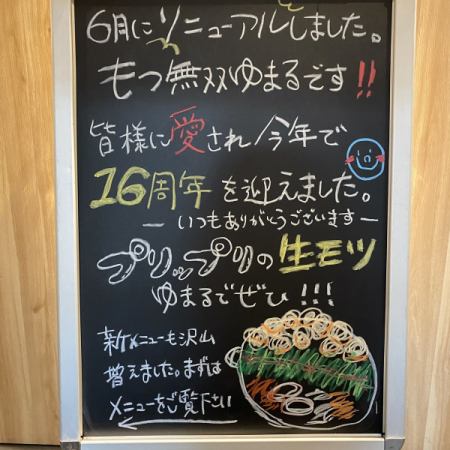 6月にリニューアルしました。
もつ無双ゆまるです!!
皆様に愛され今年で
16周年を迎えました。
ーいつもありがとうございますー
プリップリの生モツ
ゆまるでぜひ!!!
新メニューも沢山
増えました。まずは
メニューをご覧下さい